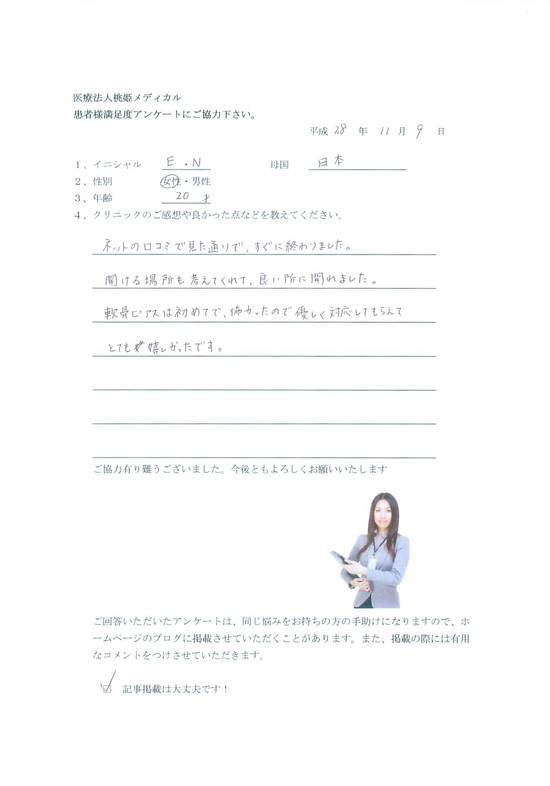 医療法人桃姫メディカル
患者様満足度アンケートにご協力下さい。
平成 28 年 11 月 9 日
1、イニシャル E・N 母国 日本
2、性別 女性・男性
3、年齢 20 才
4、クリニックのご感想や良かった点などを教えてください。
ネットの口コミで見た通りで、すぐに終わりました。
開ける場所も考えてくれて、良い所に開れました。
軟骨ピアスは初めてで、怖かったので優しく対応してもらえて
とても嬉しかったです。
ご協力有り難うございました。今後ともよろしくお願いいたします
ご回答いただいたアンケートは、同じ悩みをお持ちの方の手助けになりますので、ホ
ームページのブログに掲載させていただくことがあります。また、掲載の際には有用
なコメントをつけさせていただきます。
記事掲載は大丈夫です！